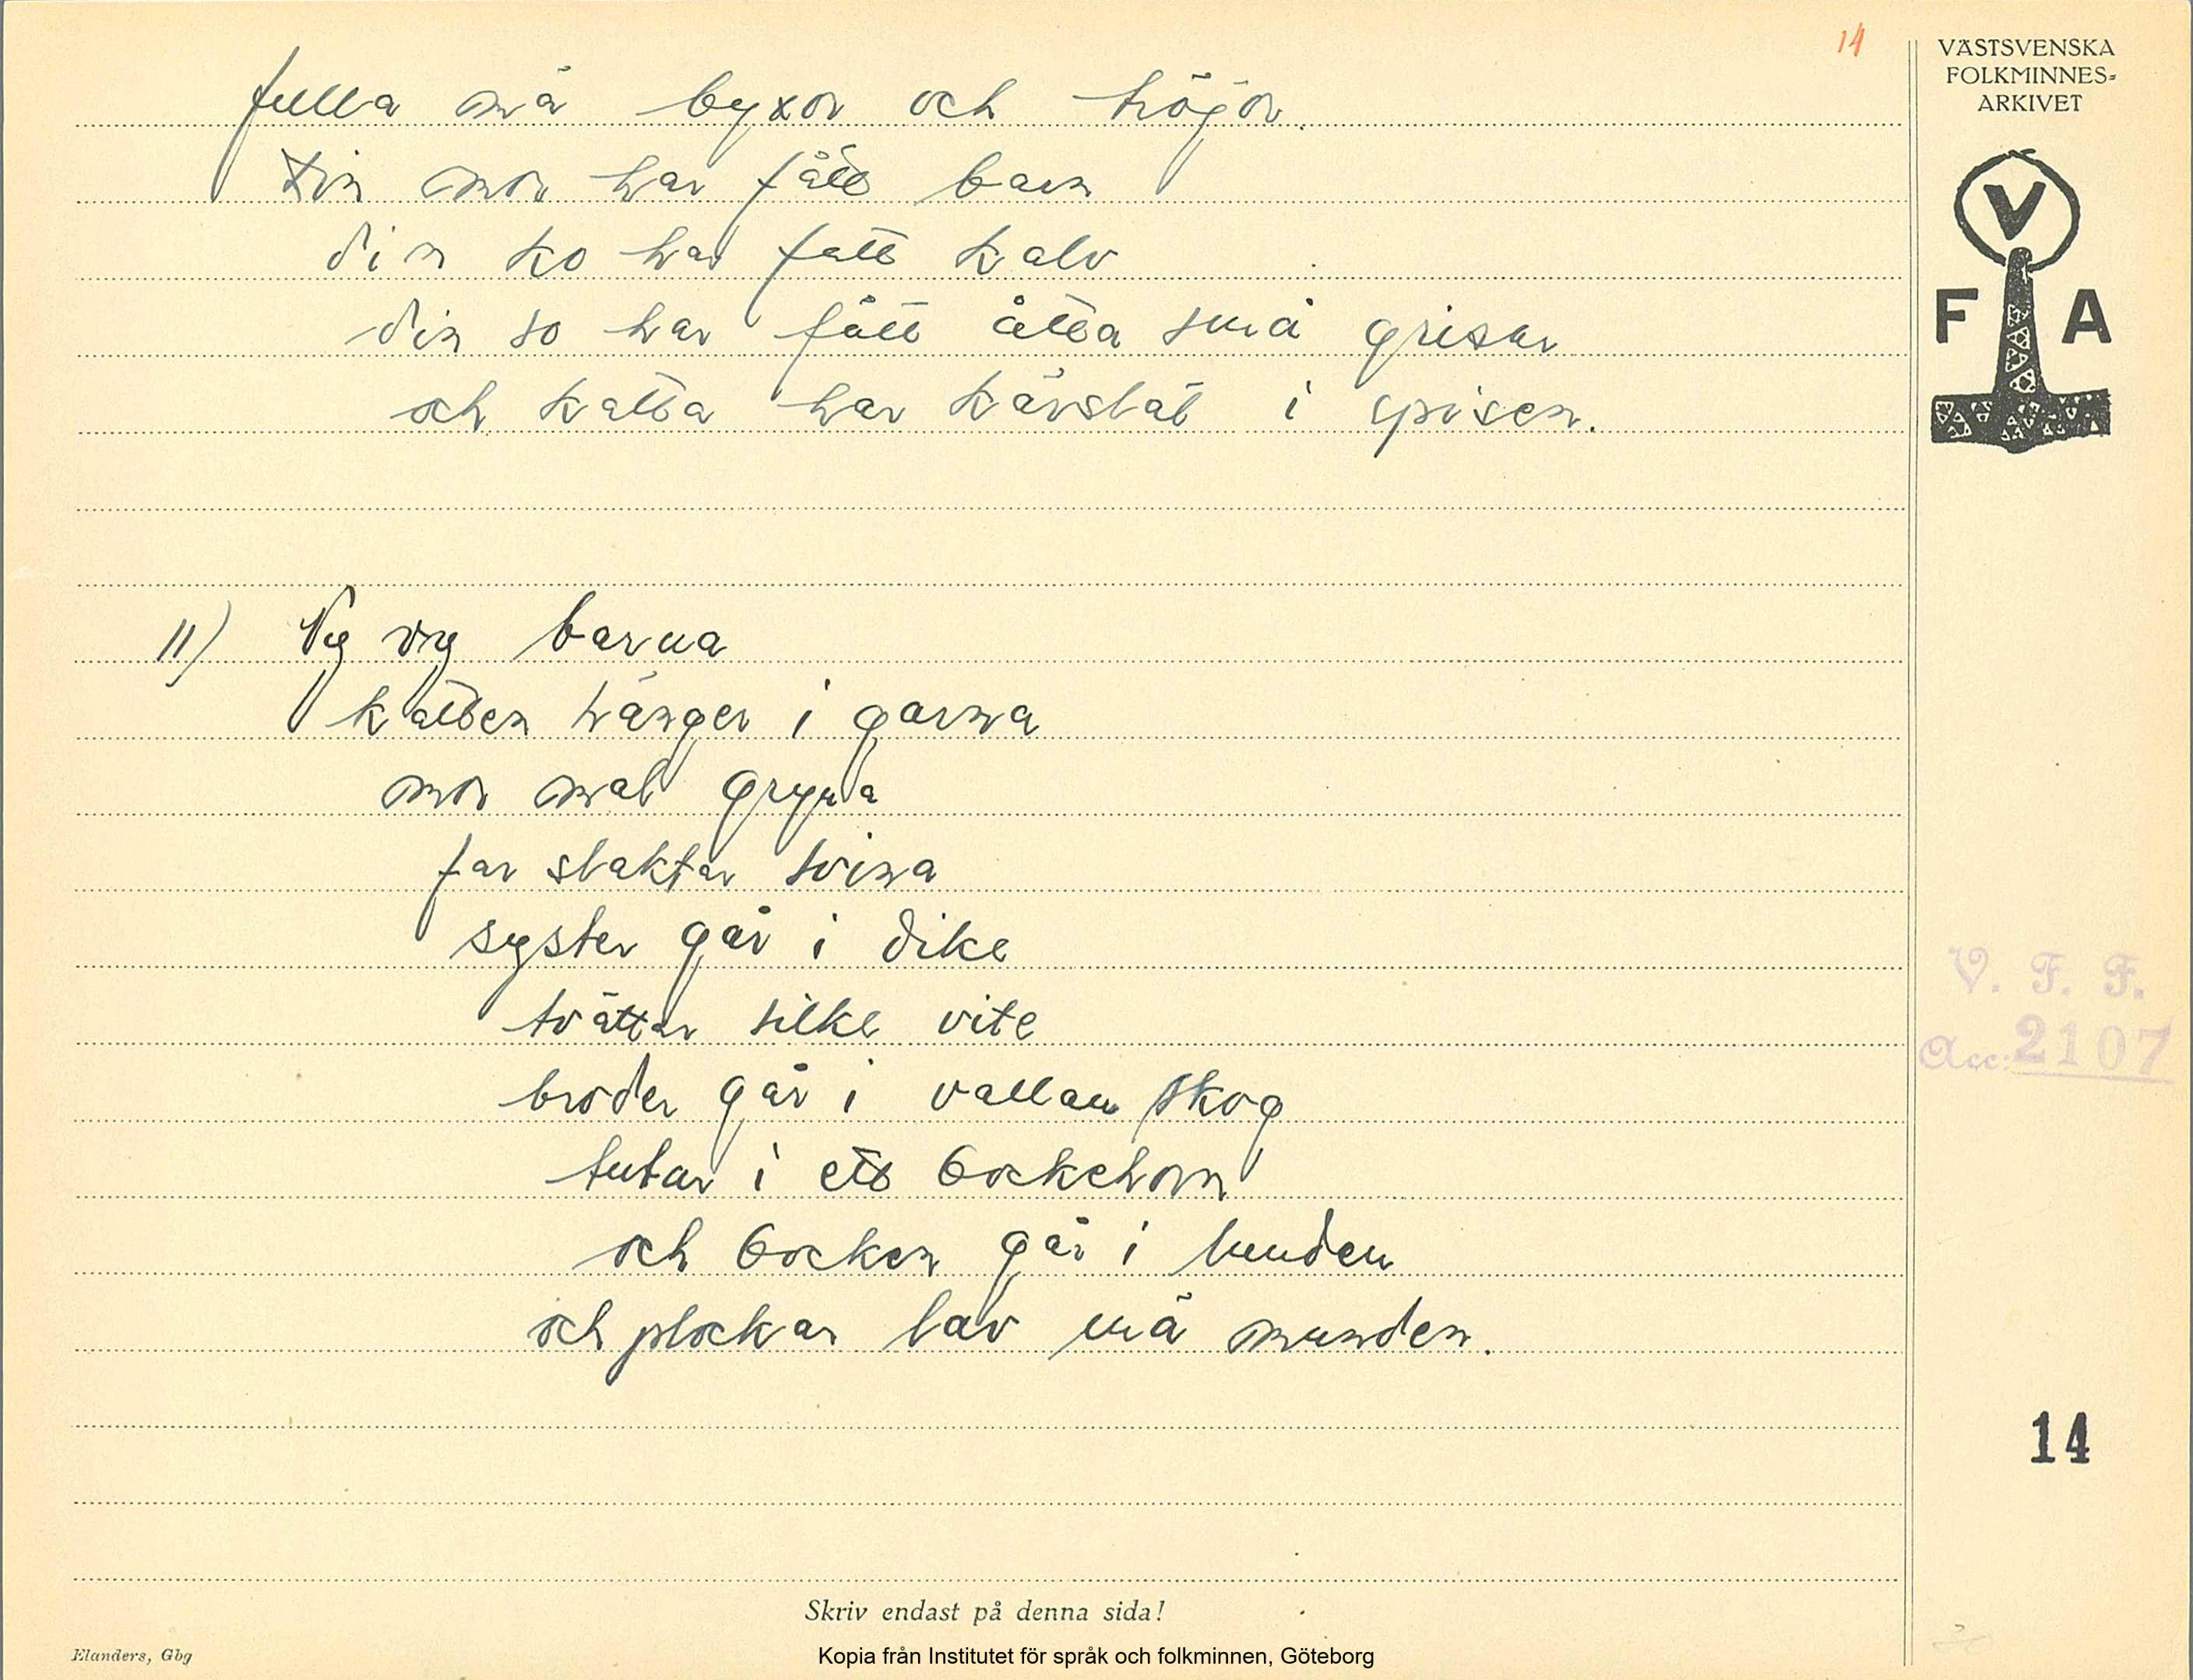 14
VÄSTSVENSKA
FOLKMINNES=
ARKIVET
V
F A
fulla mä byxor och tröjor.
Din mor har fått barn
din ko har fått kalv
din so har fått åtta små grisar
och katta har kärslat i spisen.
11) Vyg vyg barna
katten hänger i garna
mor mal gryna
far slaktar svina
syster går i dike
tvättar silke vite
broder går i vallan skog
tutar i ett bockehorn
och bocken går i lunden
och plockar lav mä munden.
V. F. F.
Acc: 2107
14
Skriv endast på denna sida!
Elanders, Gbg
Kopia från Institutet för språk och folkminnen, Göteborg